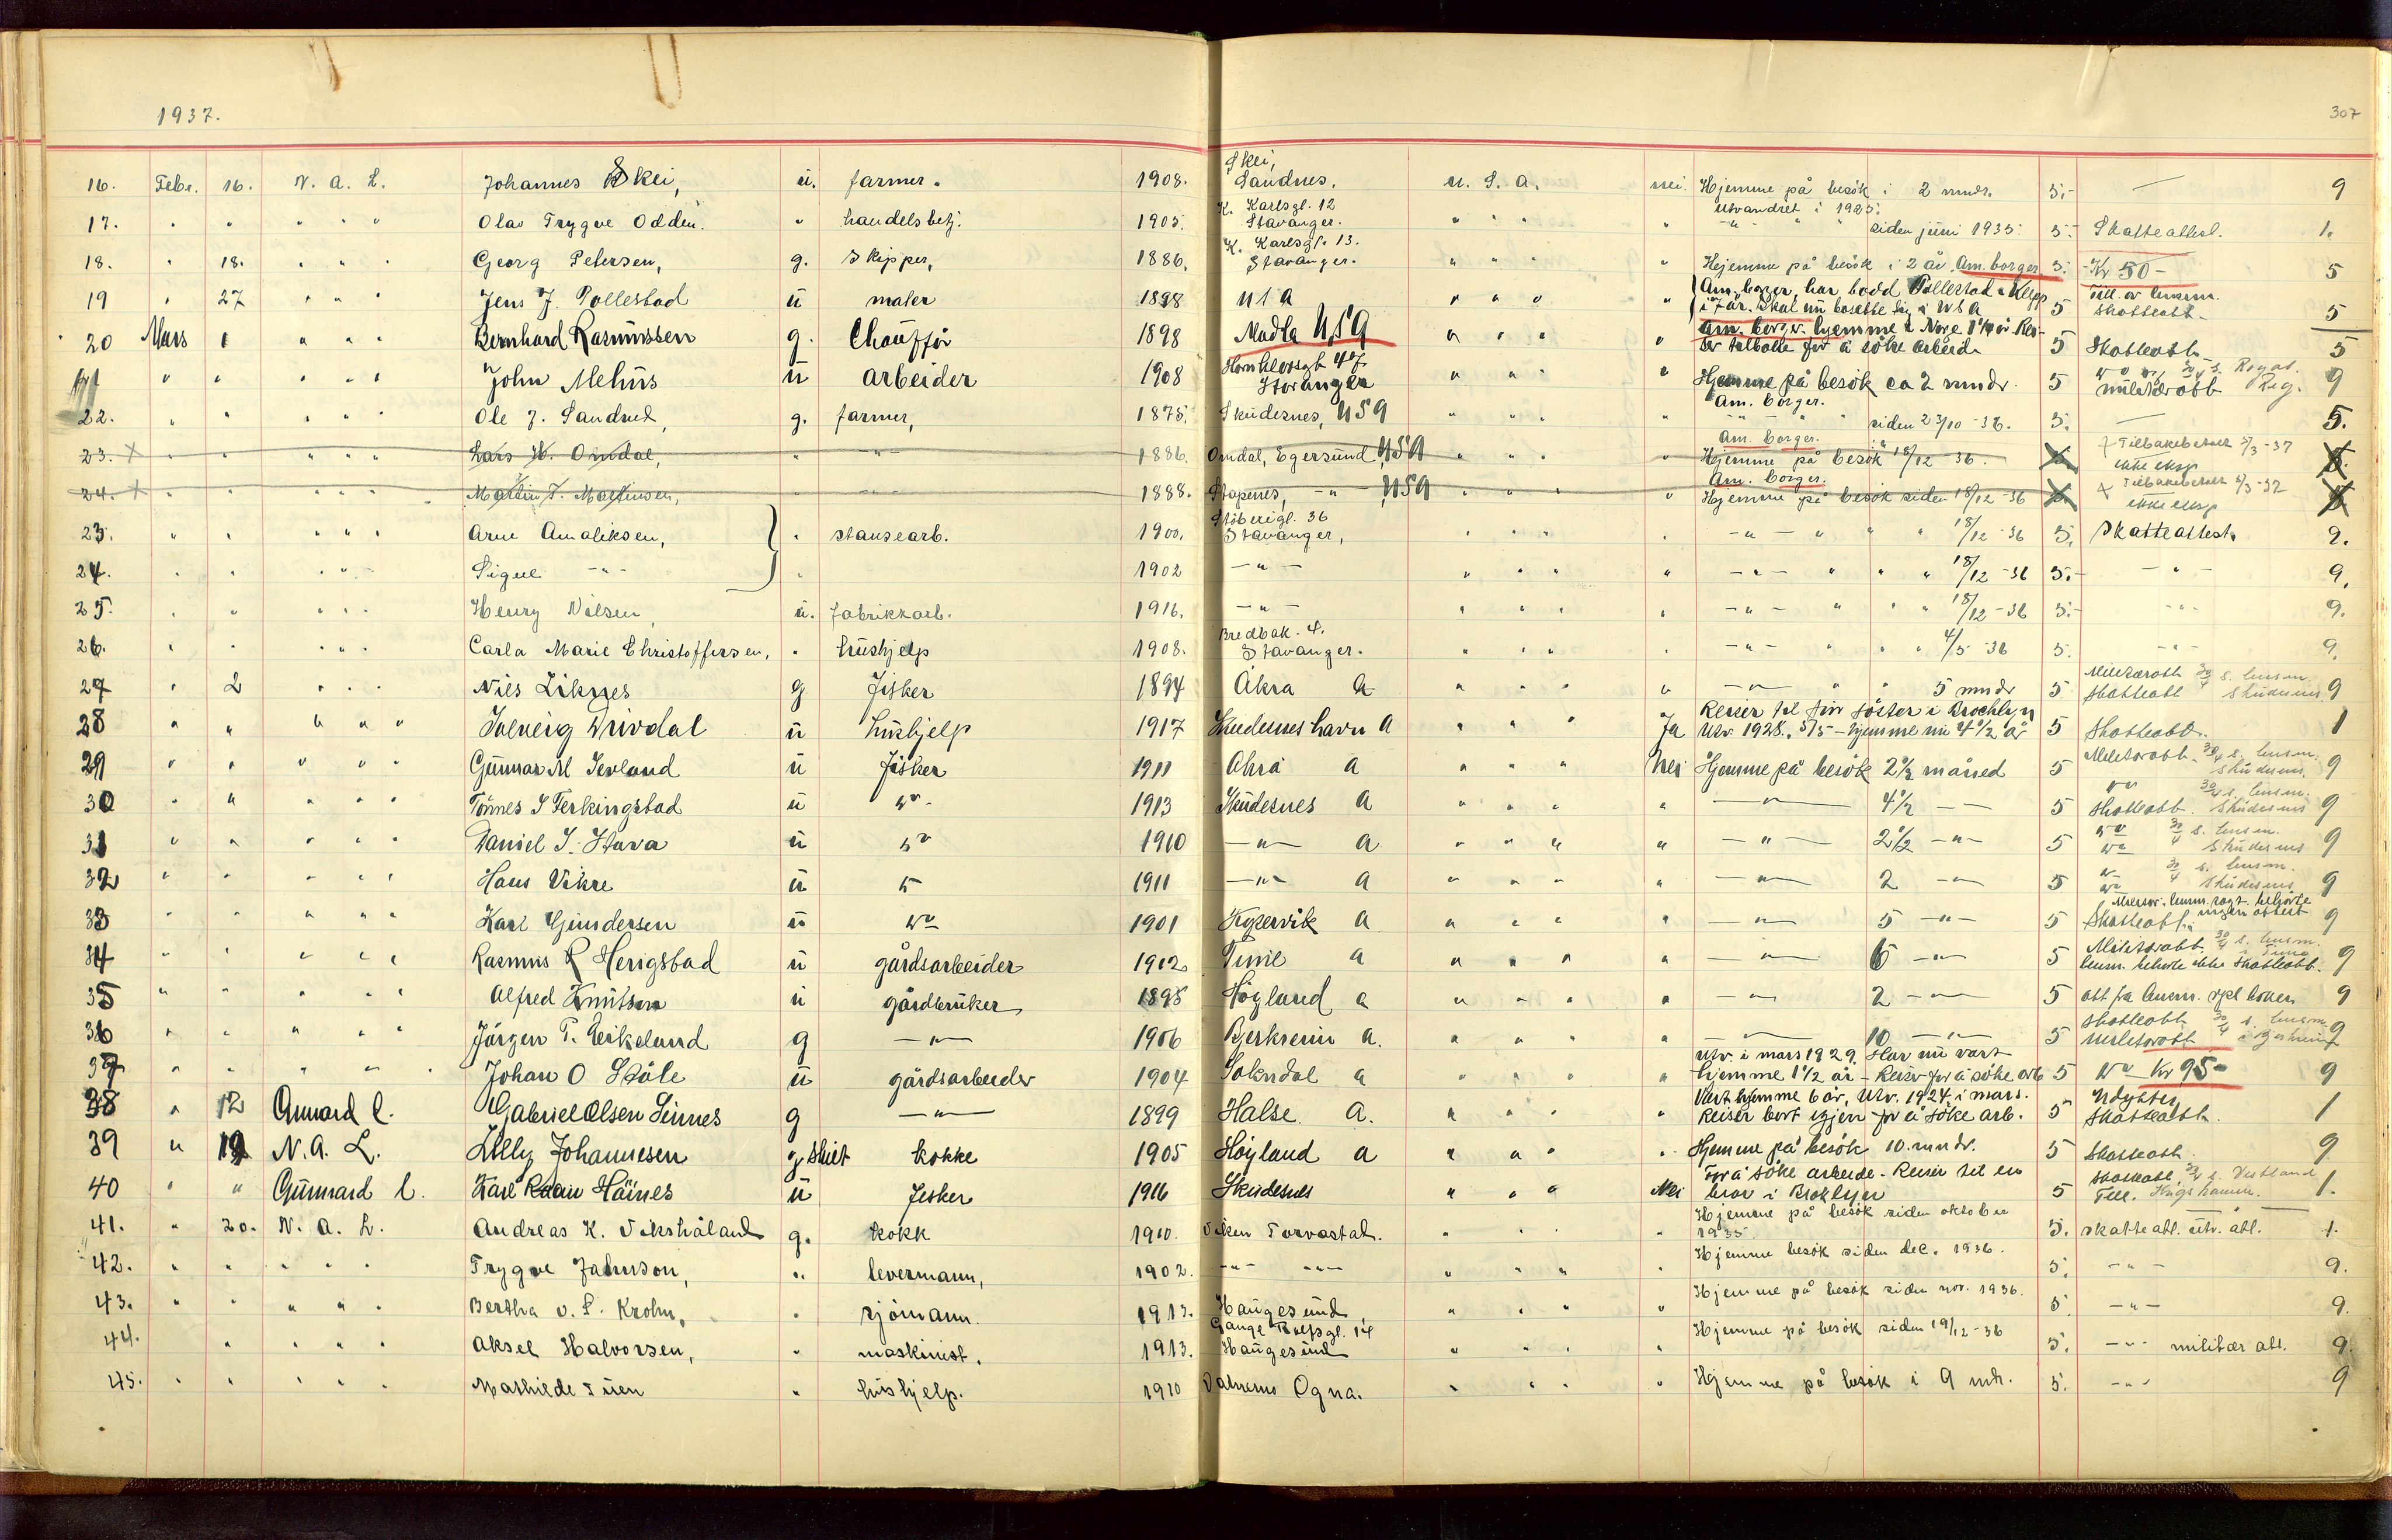 1937.
307
16. Febr. 16. N. A. L. Johannes Skei, u. farmer. 1908. Skei, Sandnes. U. S. A. nei. Hjemme på besök i 2 mndr. 5.- — 9
Utvandret i 1925.
17. " " " " " Olav Trygve Odden. " handelsbetj. 1905. K. Karlsgt. 12 Stavanger. " " " " -"- " siden juni 1935. 5.- Skatteattest. 1.
18. " 18. " " " Georg Petersen, g. Skipper, 1886. K. Karlsgt. 13. Stavanger. " " " " Hejemme på besök i 2 år. Am. borger 5.- Kr 50- 5
19 " 27 " " " Jens J. Pollestad u maler 1898 USA " " " " Am. borger, har bodd Pollestad i Klepp i 7 år. Skal nu bosette sig i USA 5 Till. av lensm. Skatteatt. 5
20 Mars 1 " " " Bernhard Rasmussen g. Chauffør 1898 Madla USA " " " " Am. borger. hjemme i Norge
ser tilbake for å söke arbeid. 5 Skatteatt. 5
" " " " " John Mehus u arbeider 1908 Stavanger " " " " Hjemme på besök ca 2 mndr. 5 militæratt 9
22. " " " " " Ole J. Sandved, g. farmer, 1875. Skudesnes, USA " " " " Am. borger. -"- " siden 23/10-36. 5. — 5.
23. + " " " " " Lars W. Omdal, " -"- 1886. Omdal, Egersund, USA " " " " Am. borger. Hjemme på besök 18/12-36. 5. + Tilbakebetalt 5/3-37 ikke eksp 5.
24. + " " " " " Martin T. Martinsen, -"- 1888. Stapnes, -"-, USA " " " " Am. borger. Hjemme på besök siden 18/12-36 5. + Tilbakebetalt 5/3-37 ikke eksp 5
23. " " " " " Arne Amaliksen, " stansearb. 1900. Stöberigt. 36 Stavanger, " " " " -"- " " " 18/12-36 5. Skatteattest. 9.
24. " " " " " Signe -"- " 1902 -"- " " " " -"- " " " 18/12-36 5.- -"- 9.
25. " " " " " Henry Nilsen, u. fabrikkarb. 1916. -"- " " " " -"- " " " 18/12-36 5.- -"- 9.
26. " " " " " Carla Marie Christoffersen, " hushjelp 1908. Bredbak. 4. Stavanger. " " " " -"- " " " 4/5-36 5. -"- 9.
27 " 2 " " " Nils Liknes g fisker 1894 Åkra A " " " " -"- " " 5 mndr 5 Militæratt 30/4 s. lensm. Skatteatt Skudesnes 9
28 " " " " " Solveig Drivdal u hushjelp 1917 Skudeneshavn A " " " Ja Reiser til sin søster i Brooklyn
Utv. 1928. 5/5 - hjemme nu 4 1/2 år 5 Skatteatt. 1
29 " " " " " Gunnar M Sevland u fisker 1911 Åkra A " " " Nei Hjemme på besök 2 1/2 måned 5 Militæratt. 30/4 s. lensm. Skudesnes. 9
30 " " " " " Tönnes S Ferkingstad u "- 1913 Skudesnes A " " " " -"- 4 1/2 — 5 " 30/4 s. lensm. Skatteatt. Skudesnes 9
31 " " " " " Daniel J. Stava u " 1910 -"- A " " " " -"- 2 1/2 -"- 5 " 30/4 s. lensm. " Skudesnes 9
32 " " " " " Hans Vikre u " 1911 -"- A " " " " -"- 2 -"- 5 " 30/4 s. lensm. " Skudesnes 9
33 " " " " " Karl Gundersen u "- 1901 Kopervik A " " " " -"- 5 -"- 5 Skatteatt. 9
34 " " " " " Rasmus R Herigstad u gårdsarbeider 1912 Time A " " " " -"- 6 -"- 5 Militæratt 30/4 s. lensm. Time
lensm. behøvte ikke skatteatt. 9
35 " " " " " Alfred Knutsen u gårdbruker 1895 Höyland A " " " " -"- 2 -"- 5 att fra lensm. 9
36 " " " " " Jörgen T. Eikeland g -"- 1906 Bjerkreim A. " " " " -"- 10 -"- 5 Skatteatt. 30/4 s. lensm. militæratt i Bjerkreim 9
37 " " " " " Johan O Ståle u gårdsarbeider 1904 Sokndal A " " " " Utv. i mars 1929. Har nu vært
hjemme 1 1/2 år - Reiser for å söke arb 5 " Kr 95- 9
38 " 12 Cunard L. Gabriel Olsen Sinnes g -"- 1899 Halse A. " " " " Vært hjemme 6 år. Utv. 1924 i mars.
Reiser bort igjen for å söke arb. 5 Skatteatt. 1
39 " 19 N. A. L. Lilly Johannesen g skilt kokke 1905 Höyland A " " " " Hjemme på besök 10. mndr. 5 Skatteatt. 9
40 " " Cunard L. Karl Håines u fisker 1916 Skudesnes " " " Nei For å söke arbeide - Reiser til en
bror i Broklyn 5 Skatteatt. 1.
41. " 20. N. A. L. Andreas K. Vikshåland g. kokk 1910. Viken Torvastad. " " " " Hjemme på besök siden oktober
1935. 5. skatteatt. utv. att. 1.
42. " " " " " Trygve Johnson, " levermann, 1902. -"- -"- " " " " Hjemme besök siden dec. 1936. 5. -"- 9.
43. " " " " " Bertha v. S. Krohn, " sjömann. 1913. Haugesund " " " " Hjemme på besök siden nov. 1936. 5. -"- 9.
44. " " " " Aksel Halvorsen, " maskinist. 1913. Gange Rolfsgt. 14 Haugesund " " " " Hjemme på besök siden 19/12-36 5. -"- militær att. 9.
45. " " " " " Mathilde Tuen " hushjelp. 1910 Ogna. " " " " Hjemme på besök i 9 mdr. 5. -"- 9